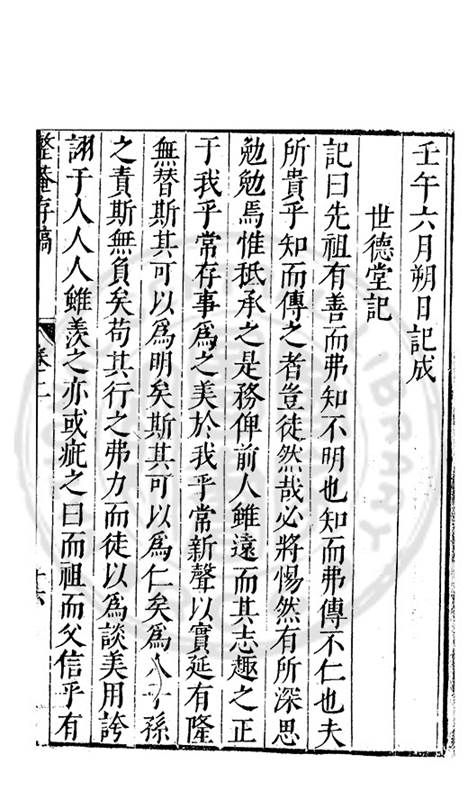 壬午六月朔日記成
世德堂記
記曰先祖有善而弗知不明也知而弗傳不仁也夫
所貴乎知而傳之者豈徒然哉必將惕然有所深思
勉勉焉惟祗承之是務俾前人雖遠而其志趣之正
于我乎常存事為之美於我乎常新聲以實延有隆
無替斯其可以為明矣斯其可以為仁矣為人子孫
之責斯無負矣苟其行之弗力而徒以為談美用誇
詡于人人人雖羨之亦或疵之曰而祖而父信乎有
整菴存稿
卷二
十六